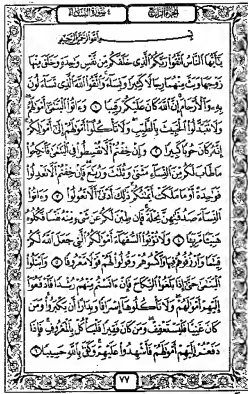 الجزء الرابع
سورة النساء ٤
بسم الله الرحمن الرحيم
يَا أَيُّهَا النَّاسُ اتَّقُوا رَبَّكُمُ الَّذِي خَلَقَكُمْ مِنْ نَفْسٍ وَاحِدَةٍ وَخَلَقَ مِنْهَا
زَوْجَهَا وَبَثَّ مِنْهُمَا رِجَالًا كَثِيرًا وَنِسَاءً وَاتَّقُوا اللَّهَ الَّذِي تَسَاءَلُونَ
بِهِ وَالْأَرْحَامَ إِنَّ اللَّهَ كَانَ عَلَيْكُمْ رَقِيبًا ١ وَآتُوا الْيَتَامَى أَمْوَالَهُمْ
وَلَا تَتَبَدَّلُوا الْخَبِيثَ بِالطَّيِّبِ وَلَا تَأْكُلُوا أَمْوَالَهُمْ إِلَى أَمْوَالِكُمْ
إِنَّهُ كَانَ حُوبًا كَبِيرًا ٢ وَإِنْ خِفْتُمْ أَلَّا تُقْسِطُوا فِي الْيَتَامَى فَانْكِحُوا
مَا طَابَ لَكُمْ مِنَ النِّسَاءِ مَثْنَى وَثُلَاثَ وَرُبَاعَ فَإِنْ خِفْتُمْ أَلَّا تَعْدِلُوا
فَوَاحِدَةً أَوْ مَا مَلَكَتْ أَيْمَانُكُمْ ذَلِكَ أَدْنَى أَلَّا تَعُولُوا ٣ وَآتُوا
النِّسَاءَ صَدُقَاتِهِنَّ نِحْلَةً فَإِنْ طِبْنَ لَكُمْ عَنْ شَيْءٍ مِنْهُ نَفْسًا فَكُلُوهُ
هَنِيئًا مَرِيئًا ٤ وَلَا تُؤْتُوا السُّفَهَاءَ أَمْوَالَكُمُ الَّتِي جَعَلَ اللَّهُ لَكُمْ
قِيَامًا وَارْزُقُوهُمْ فِيهَا وَاكْسُوهُمْ وَقُولُوا لَهُمْ قَوْلًا مَعْرُوفًا ٥ وَابْتَلُوا
الْيَتَامَى حَتَّى إِذَا بَلَغُوا النِّكَاحَ فَإِنْ آنَسْتُمْ مِنْهُمْ رُشْدًا فَادْفَعُوا
إِلَيْهِمْ أَمْوَالَهُمْ وَلَا تَأْكُلُوهَا إِسْرَافًا وَبِدَارًا أَنْ يَكْبَرُوا وَمَنْ
كَانَ غَنِيًّا فَلْيَسْتَعْفِفْ وَمَنْ كَانَ فَقِيرًا فَلْيَأْكُلْ بِالْمَعْرُوفِ فَإِذَا
دَفَعْتُمْ إِلَيْهِمْ أَمْوَالَهُمْ فَأَشْهِدُوا عَلَيْهِمْ وَكَفَى بِاللَّهِ حَسِيبًا ٦
٧٧